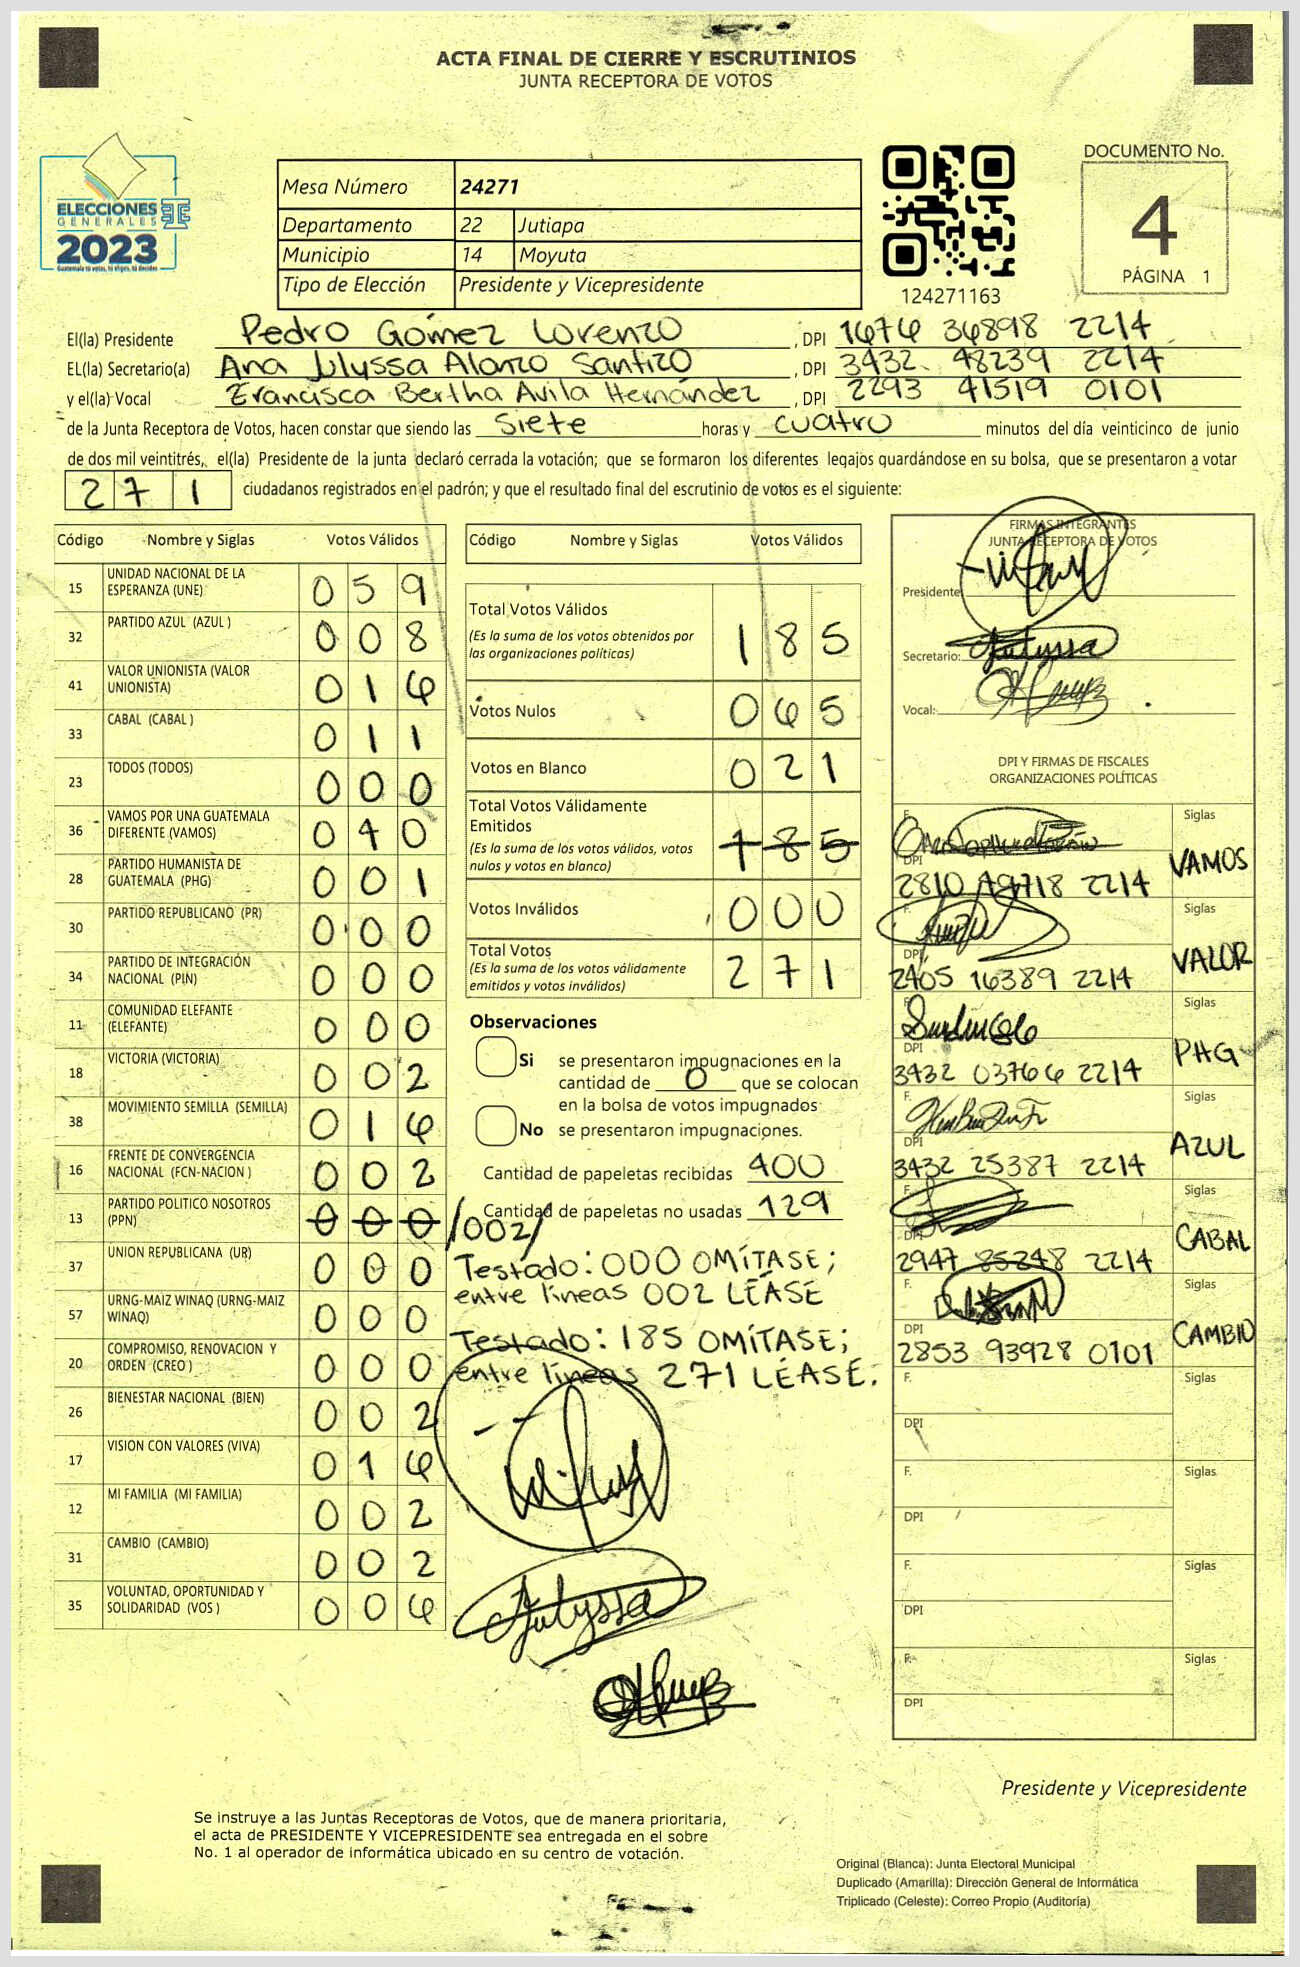 ACTA FINAL DE CIERRE Y ESCRUTINIOS
JUNTA RECEPTORA DE VOTOS
ELECCIONES
GENERALES
2023
Guatemala tú votas, tú eliges, tú decides
Mesa Número 24271
Departamento 22 Jutiapa
Municipio 14 Moyuta
Tipo de Elección Presidente y Vicepresidente
124271163
DOCUMENTO No.
4
PÁGINA 1
El(la) Presidente Pedro Gómez Lorenzo, DPI 1676 36898 2214
EL(la) Secretario(a) Ana Julyssa Alonzo Santizo, DPI 3432 48239 2214
y el(la) Vocal Francisca Bertha Avila Hernández, DPI 2293 41519 0101
de la Junta Receptora de Votos, hacen constar que siendo las siete horas y cuatro minutos del día veinticinco de junio
de dos mil veintitrés, el(la) Presidente de la junta declaró cerrada la votación; que se formaron los diferentes legajos guardándose en su bolsa, que se presentaron a votar
271 ciudadanos registrados en el padrón; y que el resultado final del escrutinio de votos es el siguiente:
Código Nombre y Siglas Votos Válidos
15 UNIDAD NACIONAL DE LA ESPERANZA (UNE) 059
32 PARTIDO AZUL (AZUL ) 008
41 VALOR UNIONISTA (VALOR UNIONISTA) 016
33 CABAL (CABAL ) 011
23 TODOS (TODOS) 000
36 VAMOS POR UNA GUATEMALA DIFERENTE (VAMOS) 040
28 PARTIDO HUMANISTA DE GUATEMALA (PHG) 001
30 PARTIDO REPUBLICANO (PR) 000
34 PARTIDO DE INTEGRACIÓN NACIONAL (PIN) 000
11 COMUNIDAD ELEFANTE (ELEFANTE) 000
18 VICTORIA (VICTORIA) 002
38 MOVIMIENTO SEMILLA (SEMILLA) 016
16 FRENTE DE CONVERGENCIA NACIONAL (FCN-NACION ) 002
13 PARTIDO POLITICO NOSOTROS (PPN) 000 /002/
37 UNION REPUBLICANA (UR) 000
57 URNG-MAIZ WINAQ (URNG-MAIZ WINAQ) 000
20 COMPROMISO, RENOVACION Y ORDEN (CREO ) 000
26 BIENESTAR NACIONAL (BIEN) 002
17 VISION CON VALORES (VIVA) 016
12 MI FAMILIA (MI FAMILIA) 002
31 CAMBIO (CAMBIO) 002
35 VOLUNTAD, OPORTUNIDAD Y SOLIDARIDAD (VOS ) 006
Código Nombre y Siglas Votos Válidos
Total Votos Válidos 185
(Es la suma de los votos obtenidos por
las organizaciones políticas)
Votos Nulos 065
Votos en Blanco 021
Total Votos Válidamente
Emitidos 185
(Es la suma de los votos válidos, votos
nulos y votos en blanco)
Votos Inválidos 000
Total Votos 271
(Es la suma de los votos válidamente
emitidos y votos inválidos)
Observaciones
Si se presentaron impugnaciones en la
cantidad de 0 que se colocan
en la bolsa de votos impugnados
No se presentaron impugnaciones.
Cantidad de papeletas recibidas 400
Cantidad de papeletas no usadas 129
Testado: 000 OMÍTASE;
entre líneas 002 LÉASE
Testado: 185 OMÍTASE;
entre líneas 271 LÉASE.
Julyssa
FIRMAS INTEGRANTES
JUNTA RECEPTORA DE VOTOS
Presidente:
Secretario: Julyssa
Vocal:
DPI Y FIRMAS DE FISCALES
ORGANIZACIONES POLÍTICAS
F. Siglas
DPI 2810 49718 2214 VAMOS
F. Siglas
DPI 2405 16389 2214 VALOR
F. Siglas
DPI 3432 03766 2214 PHG
F. Siglas
DPI 3432 25387 2214 AZUL
F. Siglas
DPI 2947 85248 2214 CABAL
F. Siglas
DPI 2853 93928 0101 CAMBIO
F. Siglas
DPI
F. Siglas
DPI
F. Siglas
DPI
F. Siglas
DPI
Presidente y Vicepresidente
Se instruye a las Juntas Receptoras de Votos, que de manera prioritaria,
el acta de PRESIDENTE Y VICEPRESIDENTE sea entregada en el sobre
No. 1 al operador de informática ubicado en su centro de votación.
Original (Blanca): Junta Electoral Municipal
Duplicado (Amarilla): Dirección General de Informática
Triplicado (Celeste): Correo Propio (Auditoría)